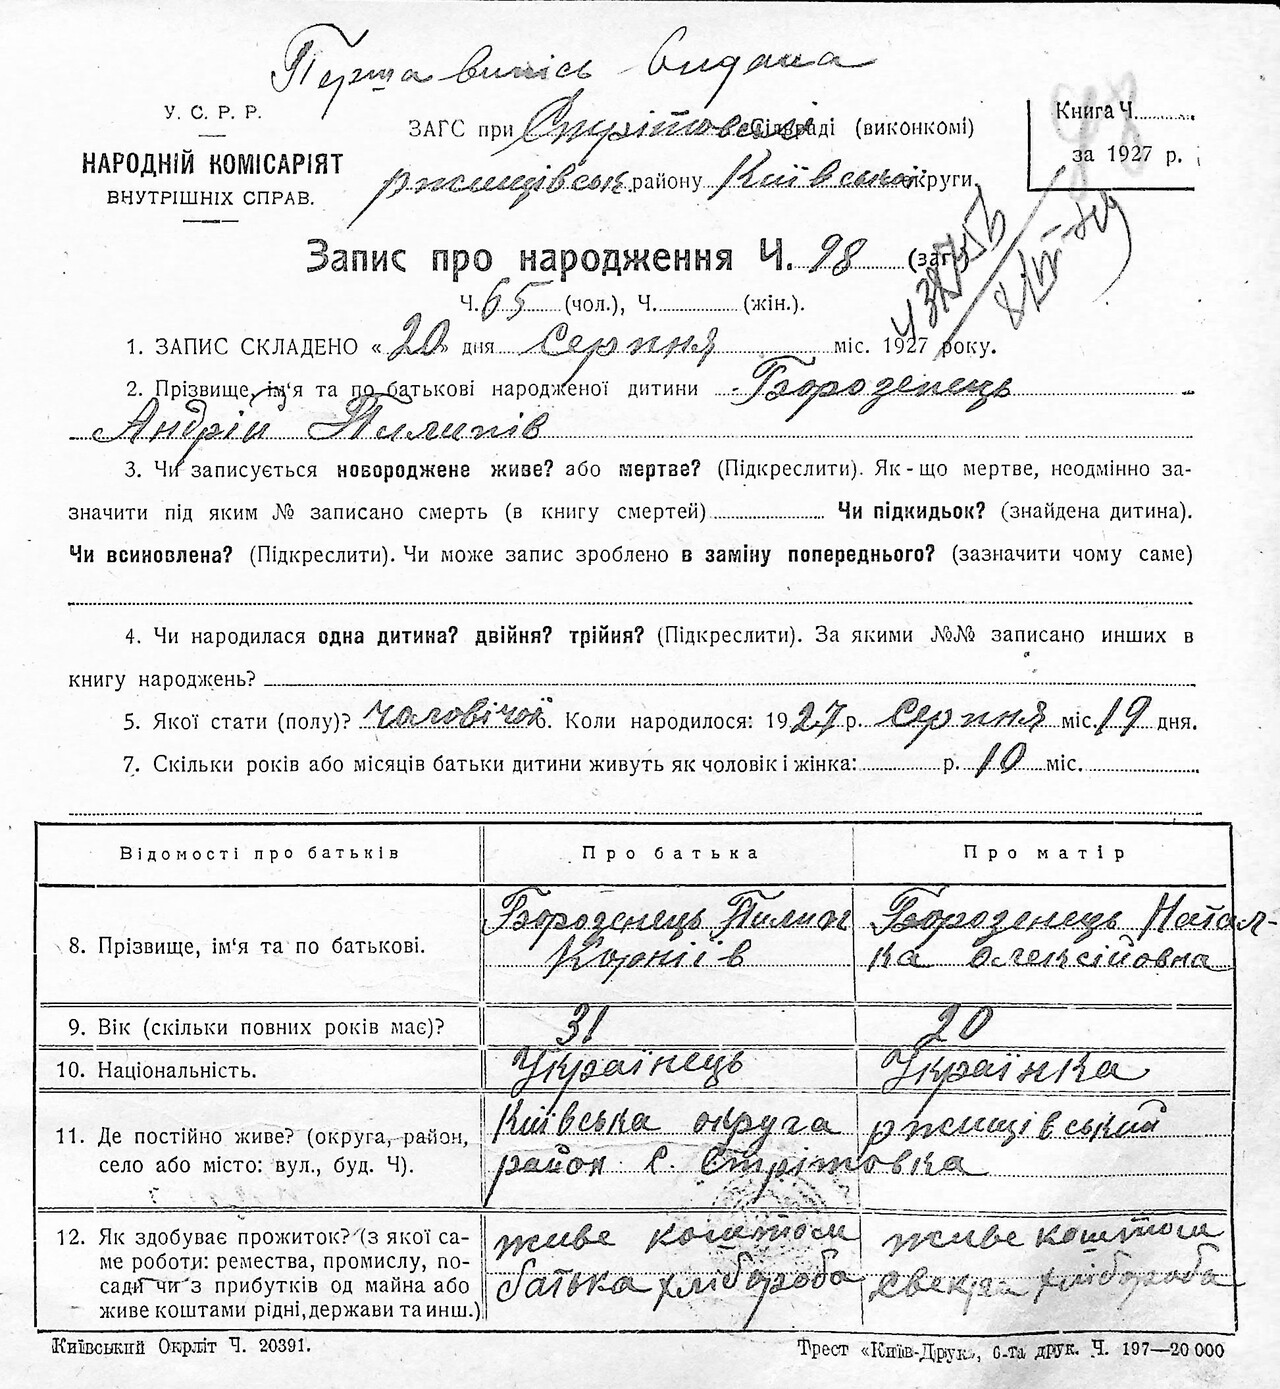 Перша випісь видана
У. С. Р. Р.
НАРОДНІЙ КОМІСАРІЯТ
ВНУТРІШНІХ СПРАВ.
ЗАГС при Стрітовській сільраді (виконкомі)
ржищівськ. району Київської округи.
Книга Ч. 98
за 1927 р.
Запис про народження Ч. 98 (заг
Ч. 65 (чол.), Ч. (жін.).
1. ЗАПИС СКЛАДЕНО «20» дня серпня міс. 1927 року.
2. Прізвище, ім‘я та по батькові народженої дитини Борозенець
Андрій Пилипів
3. Чи записується новороджене живе? або мертве? (Підкреслити). Як-що мертве, неодмінно за-
значити під яким № записано смерть (в книгу смертей) Чи підкидьок? (знайдена дитина).
Чи всиновлена? (Підкреслити). Чи може запис зроблено в заміну попереднього? (зазначити чому саме)
4. Чи народилася одна дитина? двійня? трійня? (Підкреслити). За якими №№ записано инших в
книгу народжень?
5. Якої стати (полу)? чоловічої. Коли народилося: 1927 р. серпня міс. 19 дня.
7. Скільки років або місяців батьки дитини живуть як чоловік і жінка: р. 10 міс.
Відомості про батьків Про батька Про матір
8. Прізвище, ім‘я та по батькові. Борозенець Пилип Борозенець Натал-
Корніів ка Олексійовна
9. Вік (скільки повних років має)? 31 20
10. Національність. Українець Українка
11. Де постійно живе? (округа, район, Київська округа ржищівський
село або місто: вул., буд. Ч). район с. Стрітовка
12. Як здобуває прожиток? (з якої са- живе коштом живе коштом
ме роботи: ремества, промислу, по- батька хлібороба свекра хлібороба
саді чи з прибутків од майна або
живе коштами рідні, держави та инш.)
Київський Окрліт Ч. 20391.
Трест «Київ-Друк», 6-та друк. Ч. 197—20 000